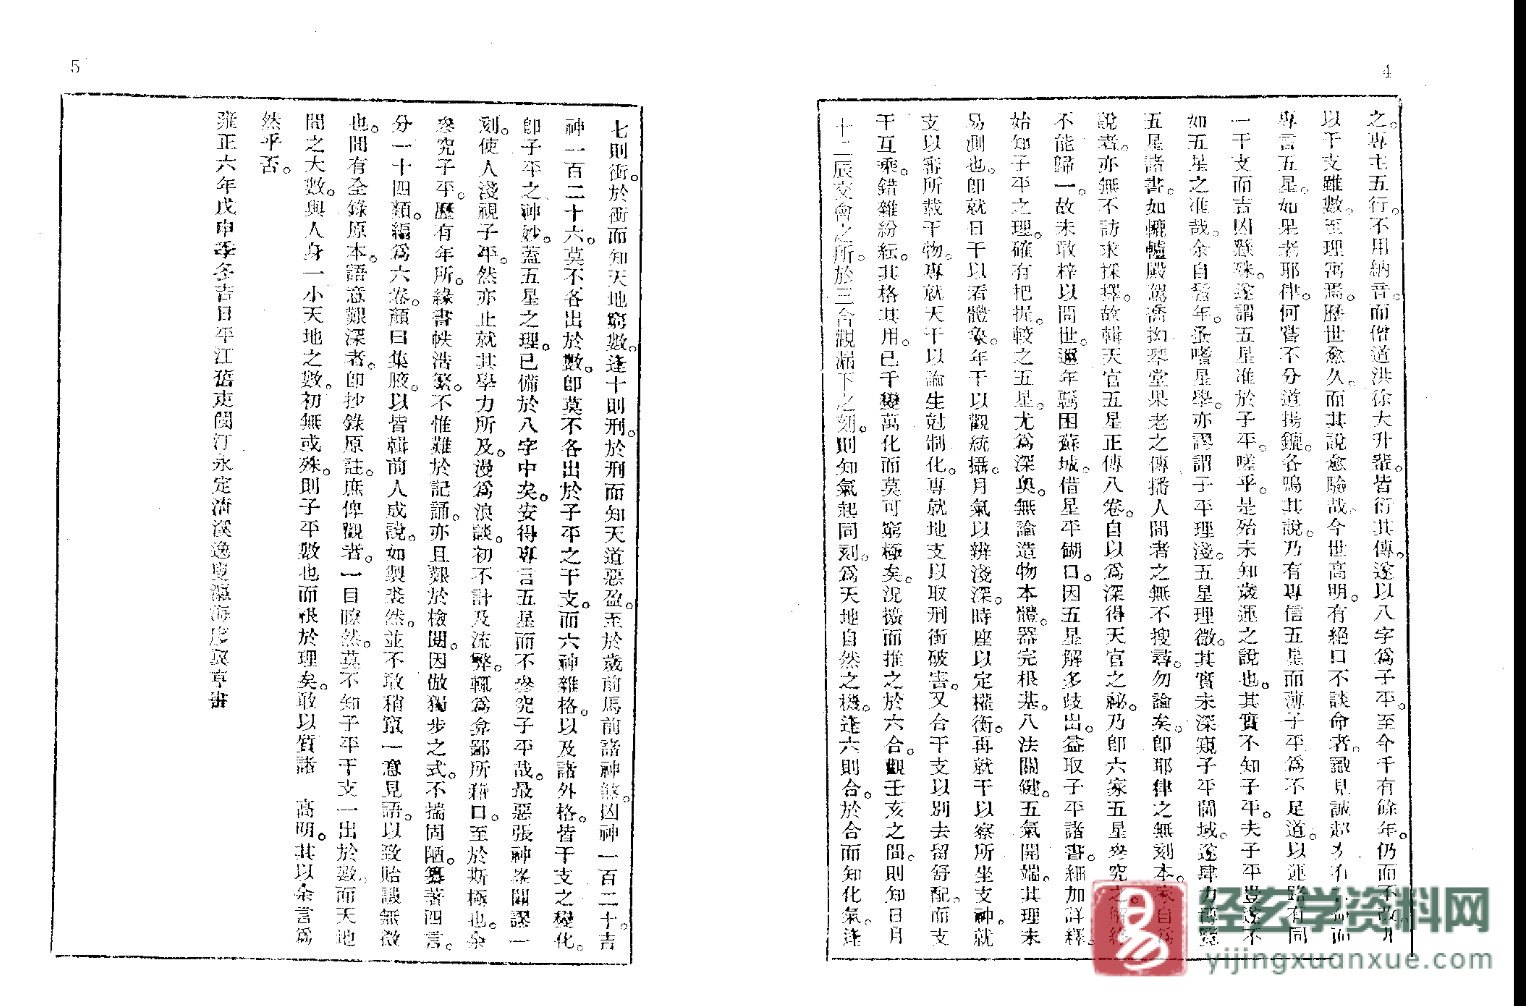 4
之。專主五行。不用納音。而僧道洪徐大升輩。皆衍其傳。遂以八字爲子平。至今千有餘年。仍而不
以干支雖數。至理寓焉。歷世愈久。而其說愈驗哉。今世高明。有絕口不談命者。識見誠超
專言五星。如果老耶律。何嘗不分道揚鑣。各鳴其說。乃有專信五星而薄子平爲不足道。以運路有同
一干支而吉凶懸殊。遂謂五星准於子平。嗟乎。是殆未知歲運之說也。其實不知子平。夫子平豈遂不
如五星之准哉。余自髫年。癸嗜星學。亦謬謂子平理淺。五星理微。其實未深窺子平閫域。遂肆力
五星諸書。如轆轤殿駕喬拗琹堂果老之傳播人間者。之無不搜尋。勿論矣。即耶律之無刻本。
說者。亦無不訪求採擇。故輯天官五星正傳八卷。自以爲深得天官之祕。乃即六家五星參究之
不能歸一。故未敢梓以問世。邇年羈困蘇城。借星平餬口。因五星解多歧出。益取子平諸書。細加詳釋。
始知子平之理。確有把捉。較之五星。尤爲深奧。無論造物本體。器完根基。八法關鍵。五氣開端。其理未
易測也。卽就日干以看體象。年干以觀統攝。月氣以辨淺深。時座以定權衡。再就干以察所坐支神。就
支以審所載干物。專就天干以論生尅制化。專就地支以取刑衝破害。又合干支以別去留舒配。而支
干互乘。錯雜紛紜。其格其用。已千變萬化而莫可窮極矣。況擴而推之於六合。觀壬亥之間。則知日月
十二辰交會之所。於三合觀漏下之刻。則知氣起同刻。爲天地自然之機。逢六則合。於合而知化氣。逢
5
七則衝。於衝而知天地窮數。逢十則刑。於刑而知天道惡盈。至於歲前馬前諸神煞。凶神一百二十。吉
神一百二十六。莫不各出於數。卽莫不各出於子平之干支。而六神雜格。以及諸外格。皆干支之變化。
卽子平之神妙。蓋五星之理。已備於八字中矣。安得專言五星而不參究子平哉。最惡張神峯闢謬一
刻。使人淺視子平。然亦止就其學力所及。漫爲浪談。初不計及流弊。輒爲弇鄙所藉口。至於斯極也。余
參究子平。歷有年所。緣書帙浩繁。不惟難於記誦。亦且艱於檢閱。因倣獨步之式。不揣固陋。纂著四言。
分一十四類。編爲六卷。顏曰集腋。以皆輯前人成說。如製裘然。並不敢稍竄一意見語。以致貽譏無徵
也。間有全錄原本。語意艱深者。卽抄錄原註。庶俾觀者。一目瞭然。莫不知子平干支一出於數。而天地
間之大數。與人身一小天地之數。初無或殊。則子平數也而根於理矣。敢以質諸　高明。其以余言爲
然乎否。
雍正六年戊申季冬吉日平江舊吏閩汀永定清溪逸叟瀛海廖冀亨識
经玄学资料网
易
yijingxuanxue.com